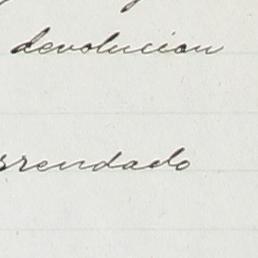 devolucion
rrendado